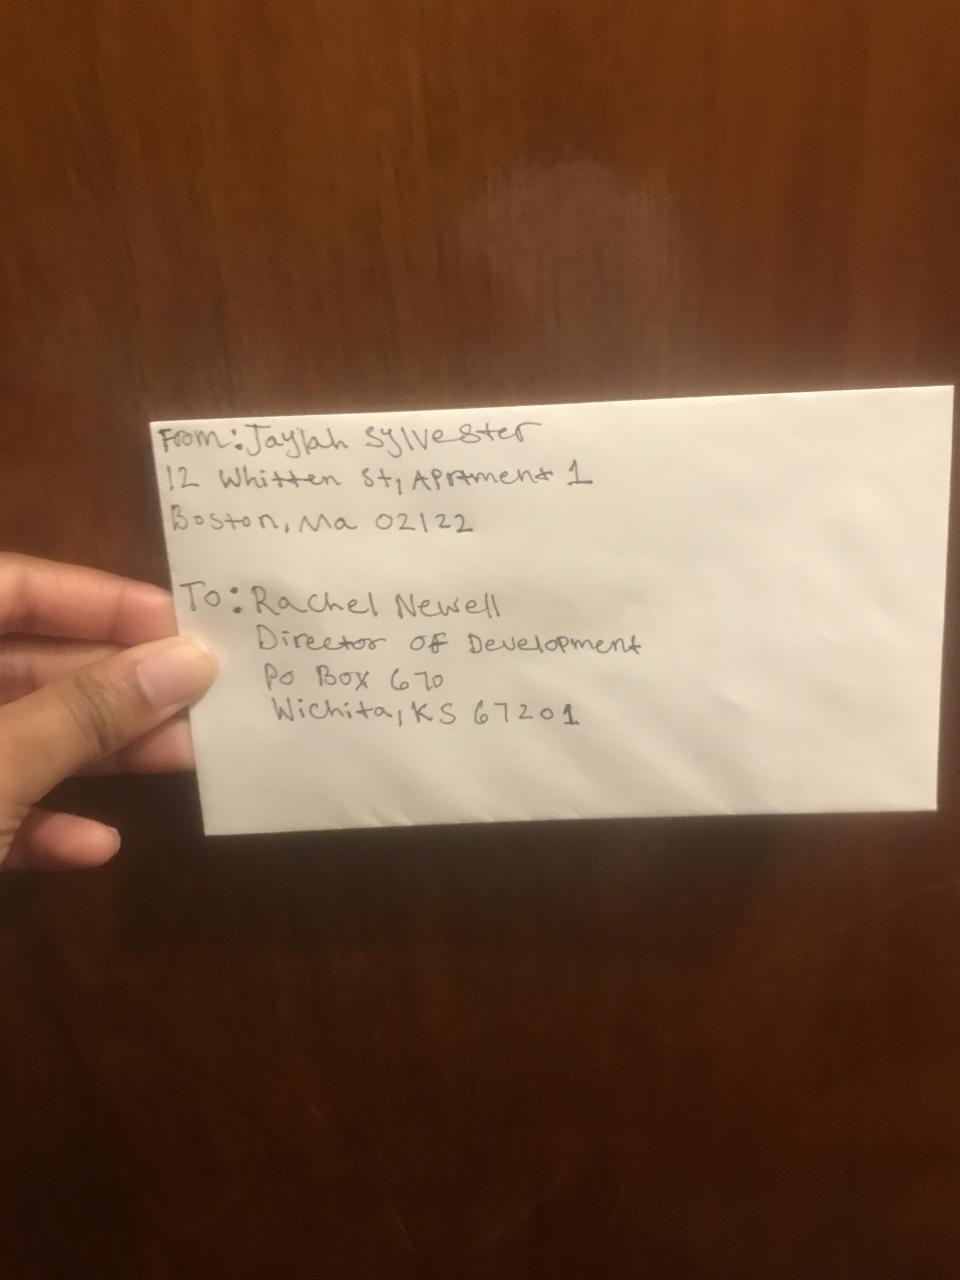 From: Jaylah Sylvester
12 Whitten St, Aprtment 1
Boston, Ma 02122
To: Rachel Newell
Director of Development
Po Box 670
Wichita, KS 67201